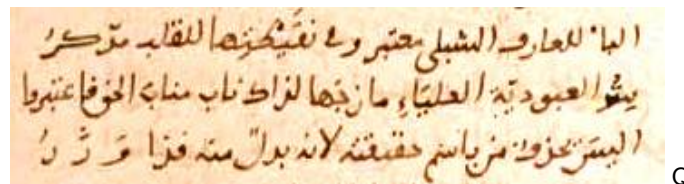 البا للعارف الشبلي معتبر وفي نقيطتها للقلب مدّكرُ
سر العبوديّة العليَاءِ مازجها لذاك ناب مناب الحق فاعتبروا
اليس يحذف من باسم حقيقته لانه بدل منه فذا وَ زَ رُ
Q